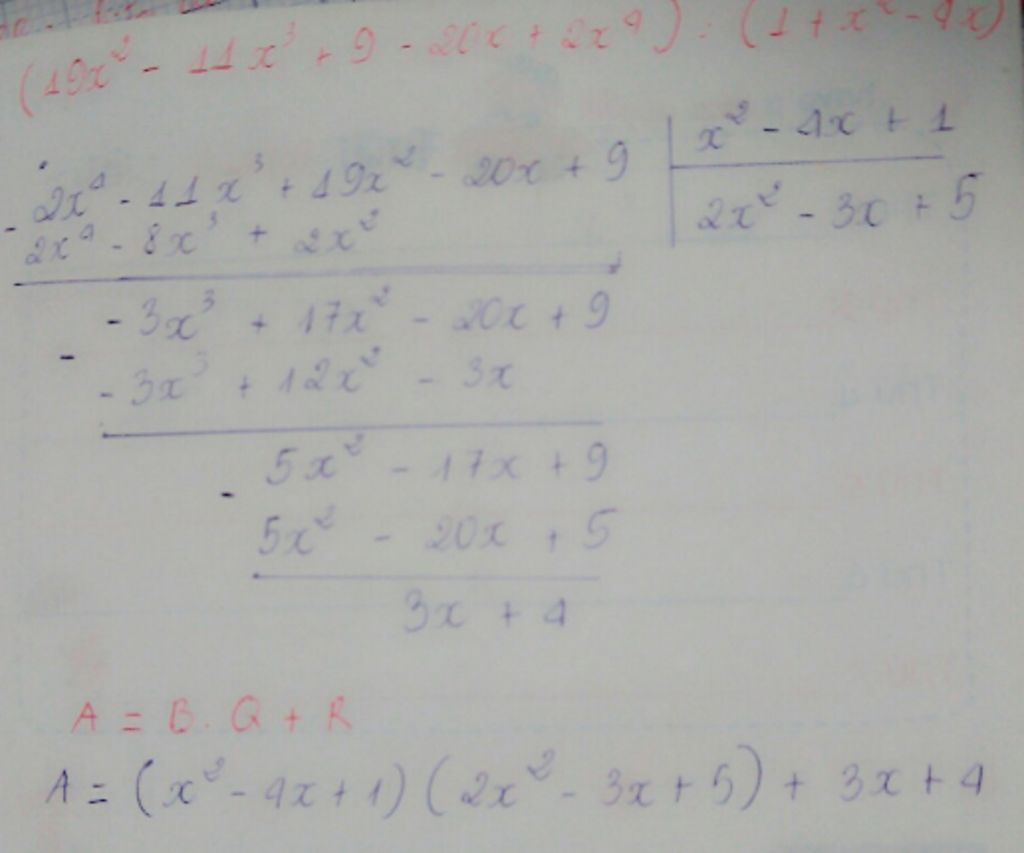 (19x² - 11x³ + 9 - 20x + 2x⁴) : (1 + x² - 4x)
2x⁴ - 11x³ + 19x² - 20x + 9 | x² - 4x + 1
- 2x⁴ - 8x³ + 2x² | 2x² - 3x + 5
- 3x³ + 17x² - 20x + 9
- - 3x³ + 12x² - 3x
5x² - 17x + 9
- 5x² - 20x + 5
3x + 4
A = B . Q + R
A = (x² - 4x + 1) (2x² - 3x + 5) + 3x + 4